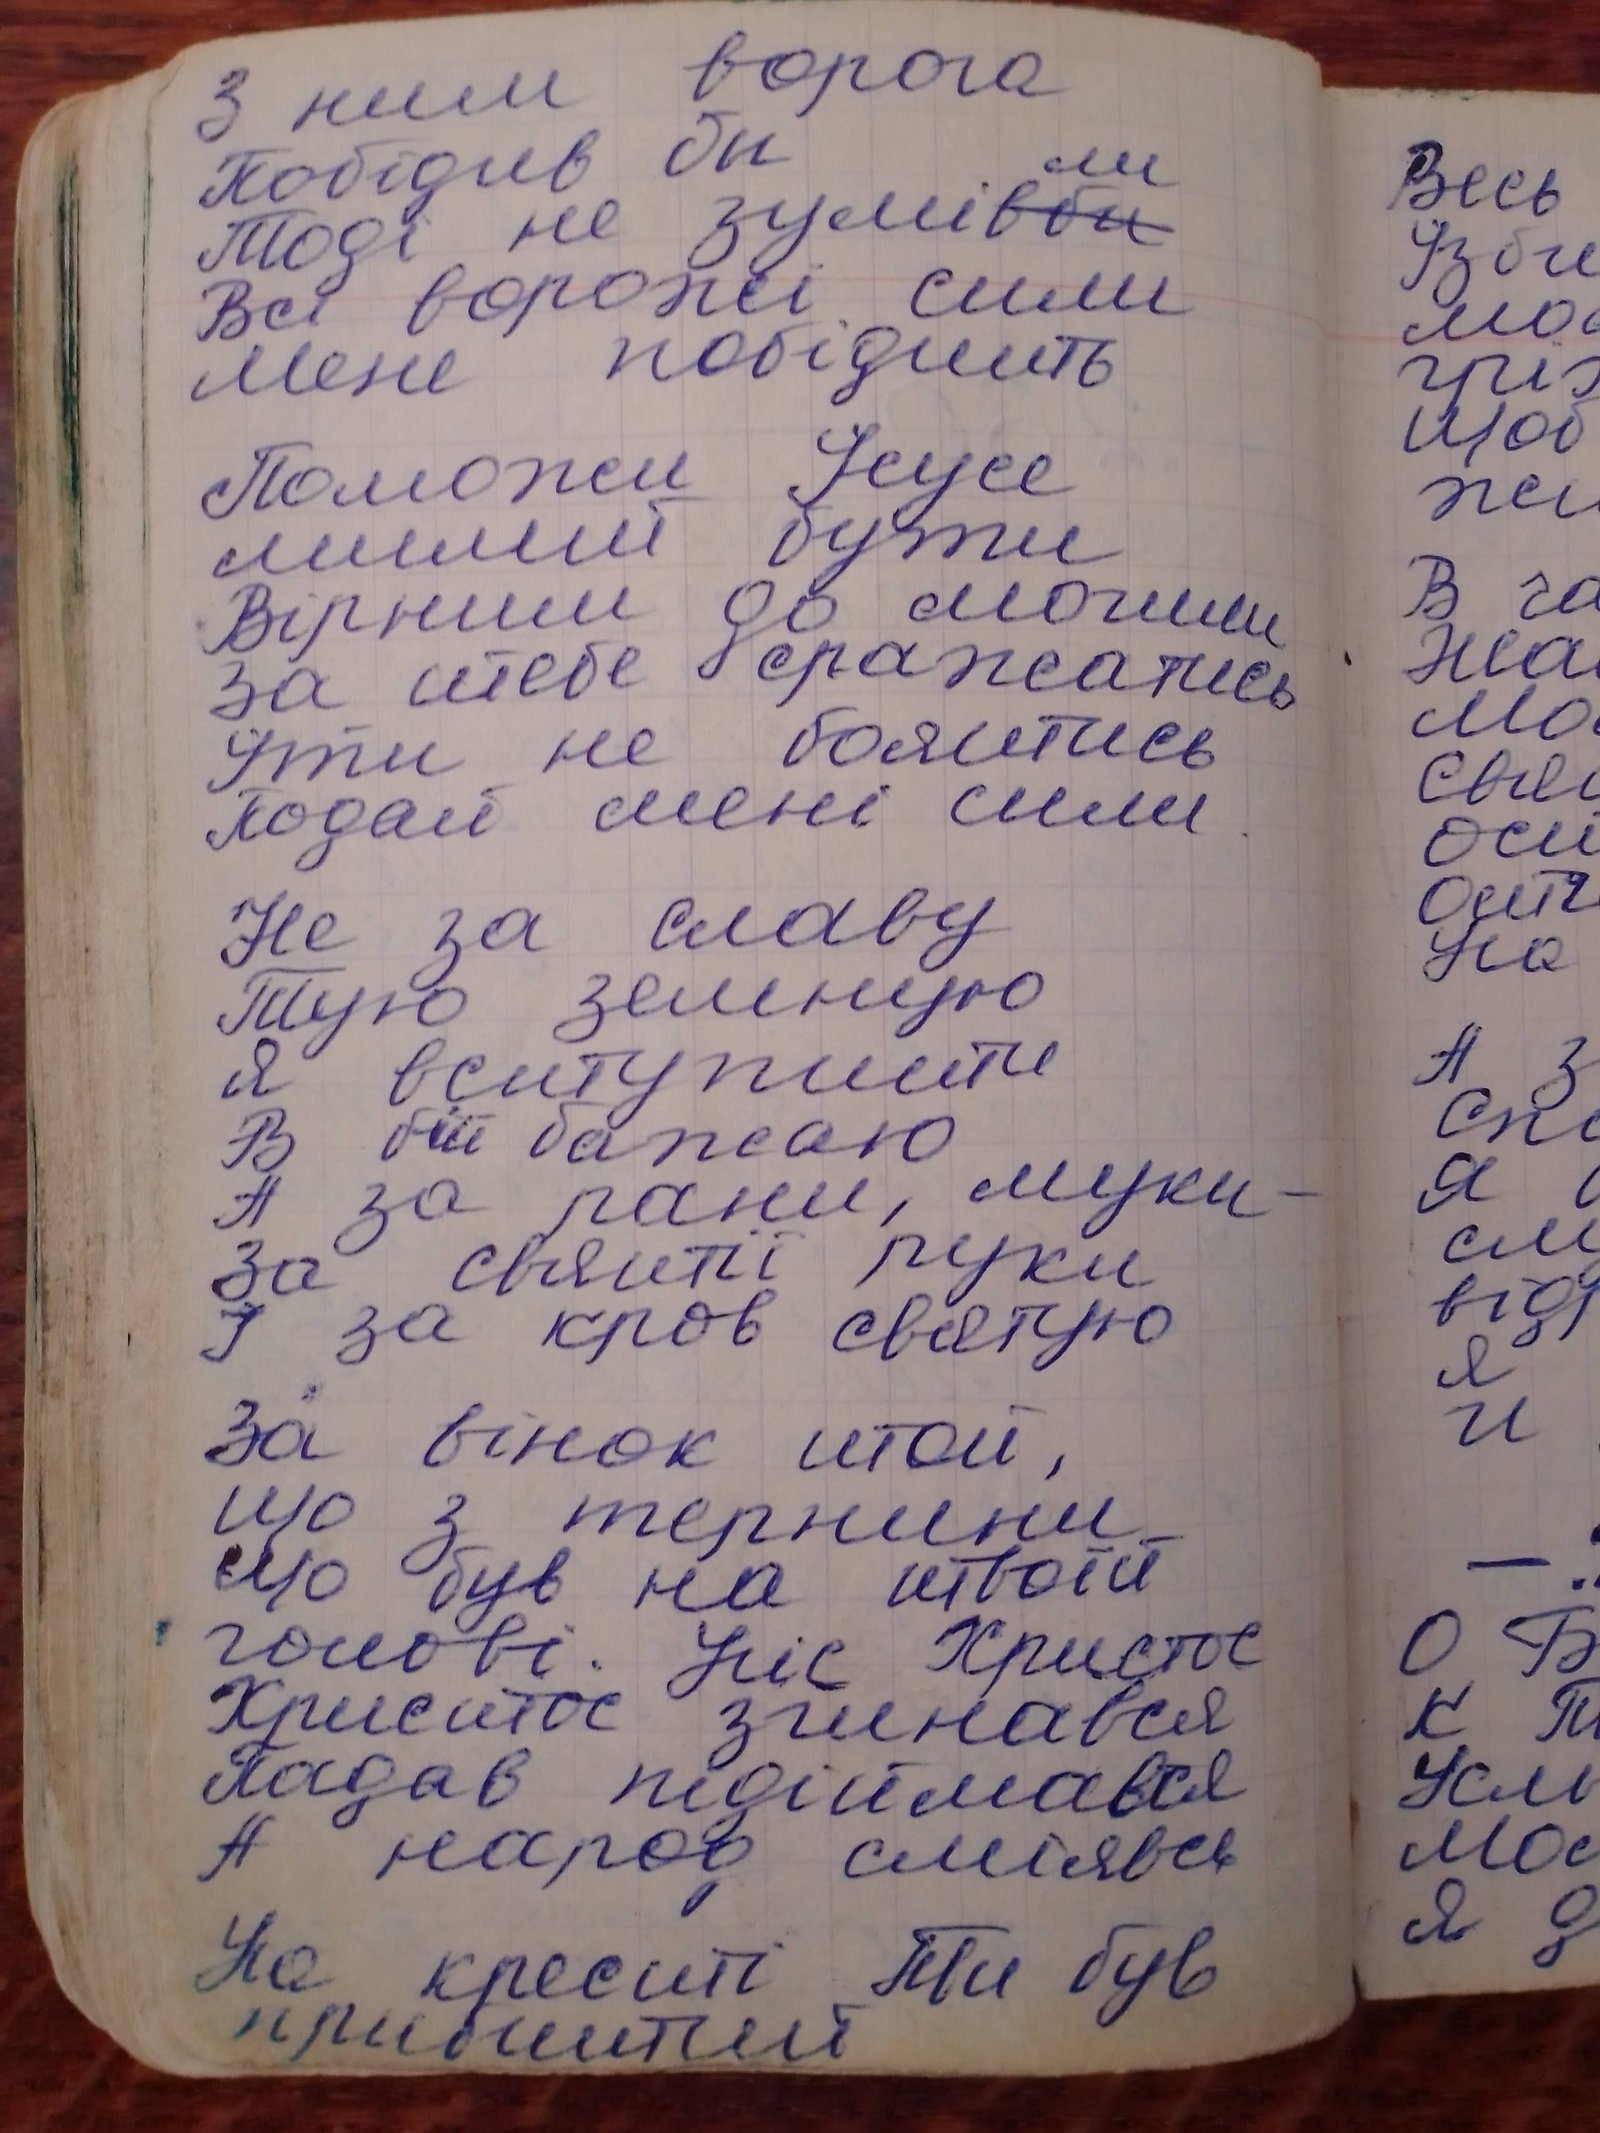 З ним ворога
Побідив би
Тоді не зуміли
Всі ворожі сили
Мене побідить
Поможи Ісусе
милий бути
Вірним до могили
За тебе сражатись
Йти не боятись
Подай мені сили.
Не за славу
Тую земную
Я вступити
В бій бажаю
А за рани, муки -
За святії руки
І за кров святую
За вінок той,
що з тернини
що був на твоїй
голові. Ніс Христос
Христос згинався
Падав підіймався
А народ сміявсь
На кресті Ти був
прибитий
Весь
В
А з
Я
я
и
О Б
к
Я